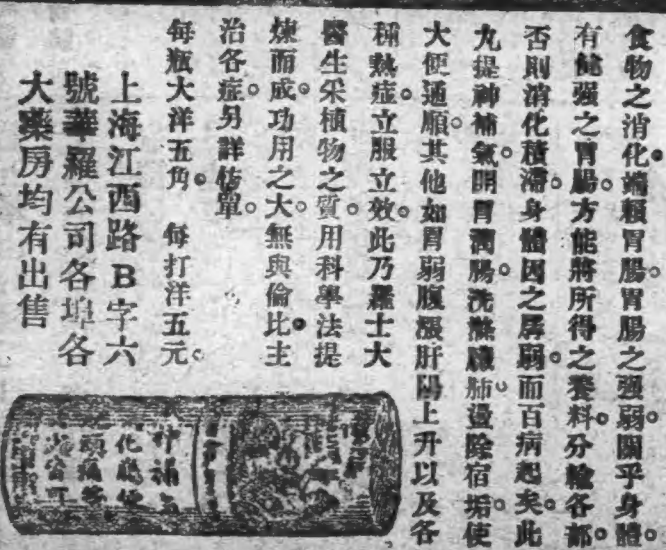 食物之消化端賴胃腸。胃腸之强弱。關乎身體。
有健强之胃腸。方能將所得之養料。分輸各部。
否則消化積滯。身體因之孱弱。而百病起矣。此
丸提神補氣。開胃潤腸。洗滌臟肺。盪除宿垢。使
大便通順。其他如胃弱腹漲肝陽上升以及各
種熱症。立服立效。此乃羅士大
醫生采植物之質。用科學法提
煉而成。功用之大。無與倫比。主
治各症。另詳仿單。
每瓶大洋五角。 每打洋五元。
上海江西路B字六
號華羅公司各埠各
大藥房均有出售